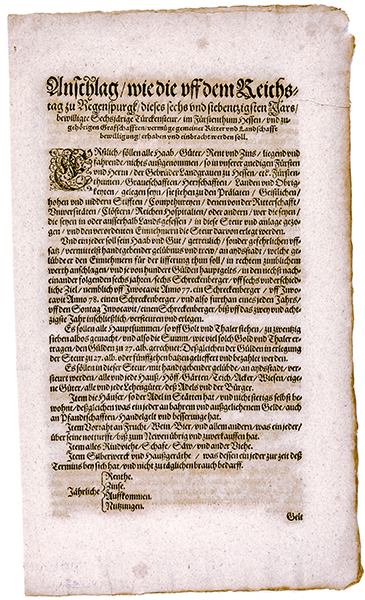 Anschlag / wie die vff dem Reichs-
tag zu Regenspurgk / dieses sechs vnd siebentzigsten Jars /
bewilligte Sechsjärige Türckensteur / im Fürstenthumb Hessen / vnd zu-
gehörigen Graffschafften / vermüge gemeiner Ritter vnd Landschafft
bewilligung / erhaben vnd einbracht werden soll.
Erstlich / söllen alle Haab / Güter / Rent vnd Zins / liegend vnd
fahrende / nichts außgenommen / so in vnserer gnedigen Fürsten
vnd Herrn / der Gebrüder Landgrauen zu Hessen / etc. Fürsten
thumen / Graueschafften / Herrschafften / Landen vnd Obrig-
keyten / gelegen seyn / sie stehen zu den Prälaten / Geistlichen /
hohen vnd nidern Stifften / Compthureyen / denen von der Ritterschafft /
Vniuersitäten / Clöstern / Reichen Hospitalien / oder andern / wer die seyen /
die seyen in oder ausserhalb Lands gesessen / in diese Steur vnd anlage gezo-
gen / vnd den verordneten Einnehmern die Steur daruon erlegt werden.
Vnd ein jeder soll sein Haab vnd Gut / getreulich / sonder gefehrlichen vff-
satz / vermittelst handtgebender gelübnus vnd trew / an andstadt / welche ge-
lübde er den Einnehmern für der lifferung thun soll / in rechtem zimblichem
werth anschlagen / vnd je von hundert Gülden hauptgelts / in den nechst nach
einander folgenden sechs jahren / sechs Schreckenberger / vff sechs vnderschied-
liche Ziel / nemblich vff Jnuocauit Anno 77. ein Schreckenberger / vff Jnuo-
cauit Anno 78. einen Schreckenberger / vnd also furthan eines jeden Jahrs /
vff den Sontag Jnuocauit / einen Schreckenberger / biß vff das zwey vnd ach-
zigste Jahr inschließlich / versteuren vnd erlegen.
Es söllen alle Hauptsummen / so vff Golt vnd Thaler stehen / zu zwentzig
sieben albos gemacht / vnd also die Summ / wie viel solch Gold vnd Thaler er-
tragen / den Gülden zu 27. alb. gerechnet / Deßgleichen der Gülden in erlegung
der Steur zu 27. alb. oder fünffzehen batzen gelieffert vnd bezahlet werden.
Es söllen in dieser Steur / mit handtgebender gelübde / an andsstadt / ver-
steurt werden / alle vnd jede Häuß / Höff / Gärten / Teich / Äcker / Wiesen / eige-
ne Güter / alle vnd jede Lehngüter / deß Adels vnd der Bürger.
Jtem die Häuser / so der Adel in Stätten hat / vnd nicht stettigs selbst be-
wohnt / deßgleichen was ein jeder an bahrem vnd außgeliehenem Gelde / auch
an Pfandschafften / Handelgelt vnd besserunge hat.
Jtem Vorraht an Frucht / Wein / Bier / vnd allem andern / was ein jeder /
über seine notturfft / biß zum Neuen übrig vnd zuuerkauffen hat.
Jtem alles Rindviehe / Schafe / Säw / vnd ander Viehe.
Jtem Silberwerck vnd Haußgeräthe / was dessen ein jeder zur zeit deß
Termins bey sich hat / vnd nicht zu täglichen brauch bedarff.
Jährliche
Renthe.
Zinse.
Auffkommen.
Nutzungen.
Gelt